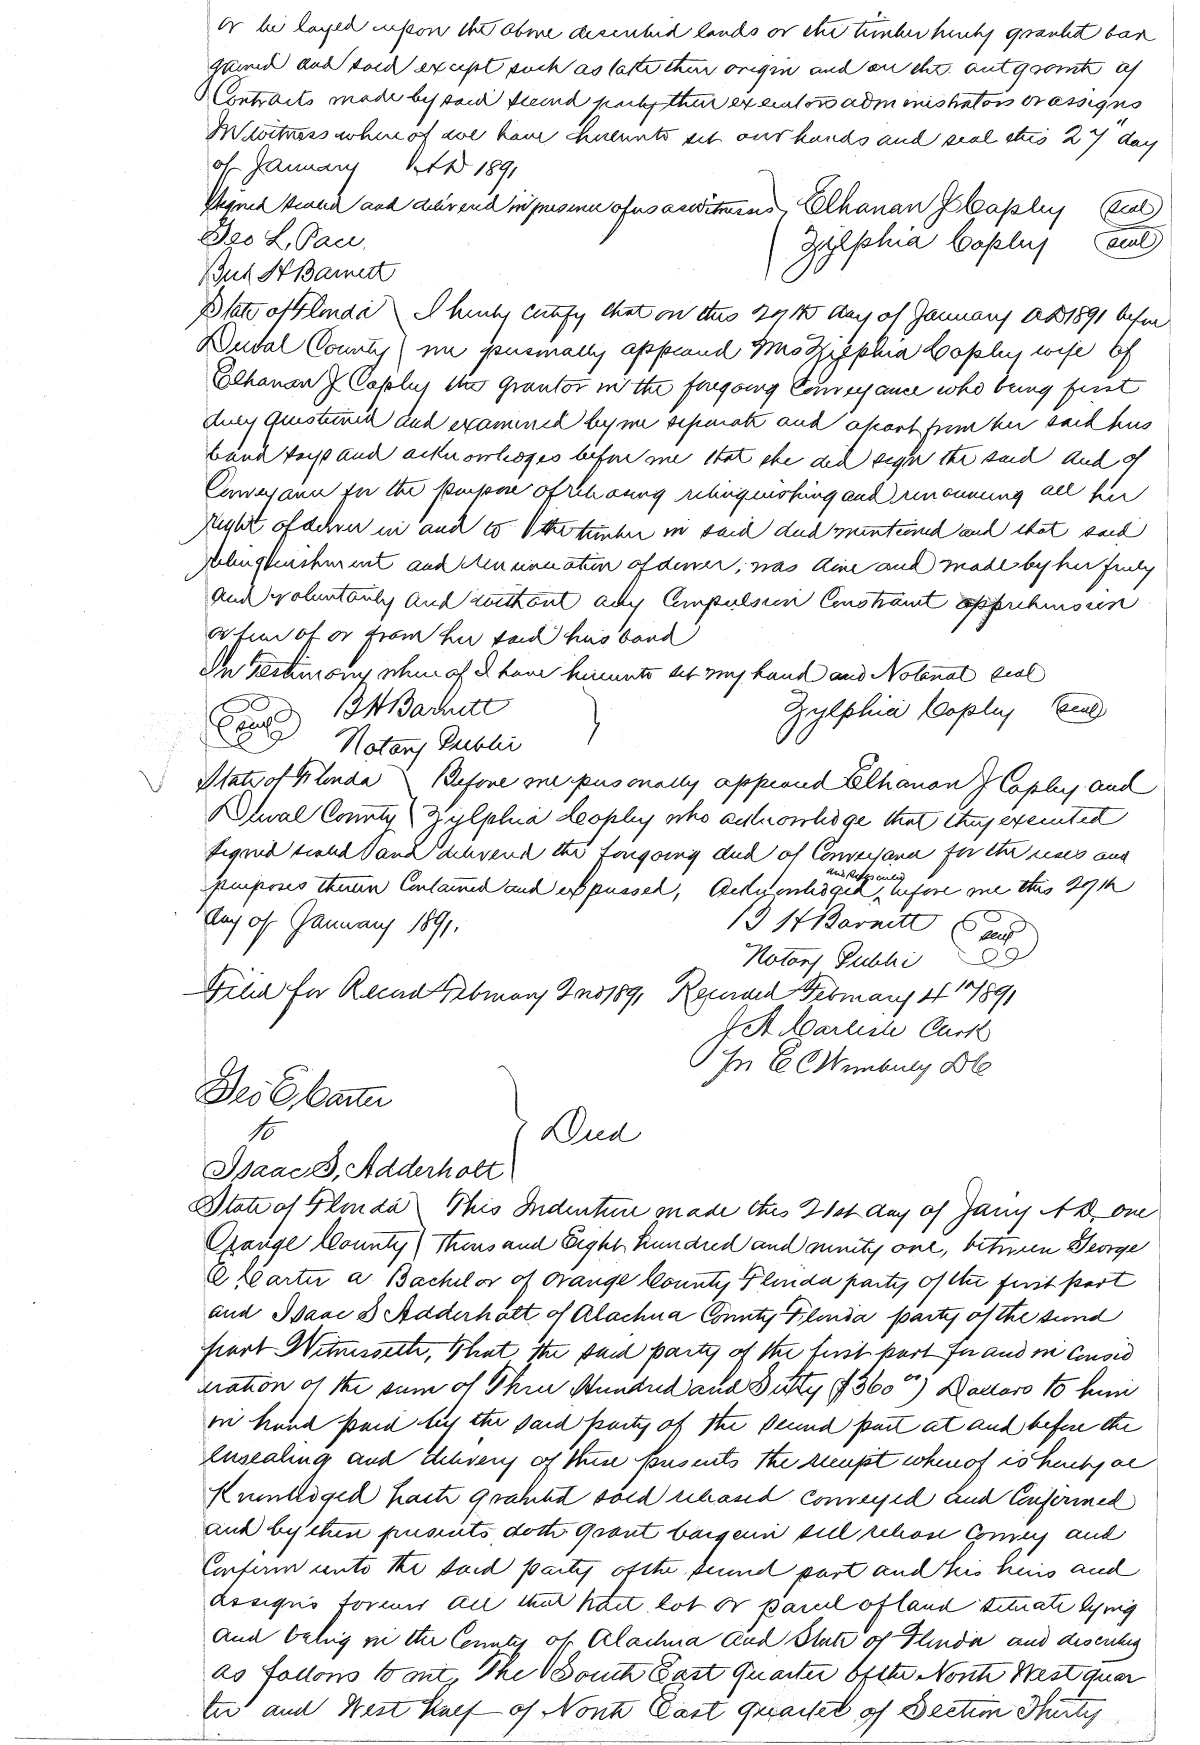 or be layed upon the above described lands or the timber hereby granted bar
gained and sold except such as take their origin and are the outgrowth of
Contracts made by said second party their executors administrators or assigns
In witness where of we have hereunto set our hands and seal this 27" day
of January AD 1891
Signed sealed and delivered in presence of us as witnesses Elhanan J Copley (seal)
Geo L. Pace. Zylphia Copley (seal)
H Barnett
State of Florida I hereby certify that on this 29th day of January AD 1891 before
Duval County me personally appeared Mrs Zylphia Copley wife of
Elhanan J Copley the grantor in the foregoing Conveyance who being first
duly questioned and examined by me separate and apart from her said hus
band says and acknowledges before me that she did sign the said deed of
Conveyance for the purpose of releasing relinquishing and renouncing all her
right of dower in and to the timber in said deed mentioned and that said
relinquishment and renunciation of dower, was done and made by her freely
and voluntarily and without any Compulsion Constraint apprehension
or fear of or from her said husband
In Testimony where of I have hereunto set my hand and Notarial seal
(seal) B H Barnett Zylphia Copley (seal)
Notary Public
State of Florida Before me personally appeared Elhanan J Copley and
Duval County Zylphia Copley who acknowledge that they executed
signed sealed and delivered the foregoing deed of Conveyance for the uses and
purposes therein Contained and expressed, Acknowledged before me this 29th
day of January 1891. B H Barnett (seal)
Notary Public
Filed for Record February 2nd 1891 Recorded February 4th 1891
J A Carlisle Clerk
Pr E C Wimberly DC
Geo E. Carter
to Deed
Isaac S. Adderholt
State of Florida This Indenture made this 21st day of Jany AD one
Orange County thousand Eight hundred and ninety one, between George
E. Carter a Bachelor of Orange County Florida party of the first part
and Isaac S Adderholt of Alachua County Florida party of the second
part Witnesseth, that the said party of the first part for and in consid
eration of the sum of Three Hundred and Sixty ($360 00) Dollars to him
in hand paid by the said party of the second part at and before the
ensealing and delivery of these presents the receipt whereof is hereby ac
Knowledged hath granted sold released conveyed and Confirmed
and by these presents doth grant bargain sell release Convey and
Confirm unto the said party of the second part and his heirs and
assigns forever all that part lot or parcel of land situate lying
and being in the County of Alachua and State of Florida and described
as follows to wit, The South East Quarter of the North West quar
ter and West half of North East quarter of Section Thirty